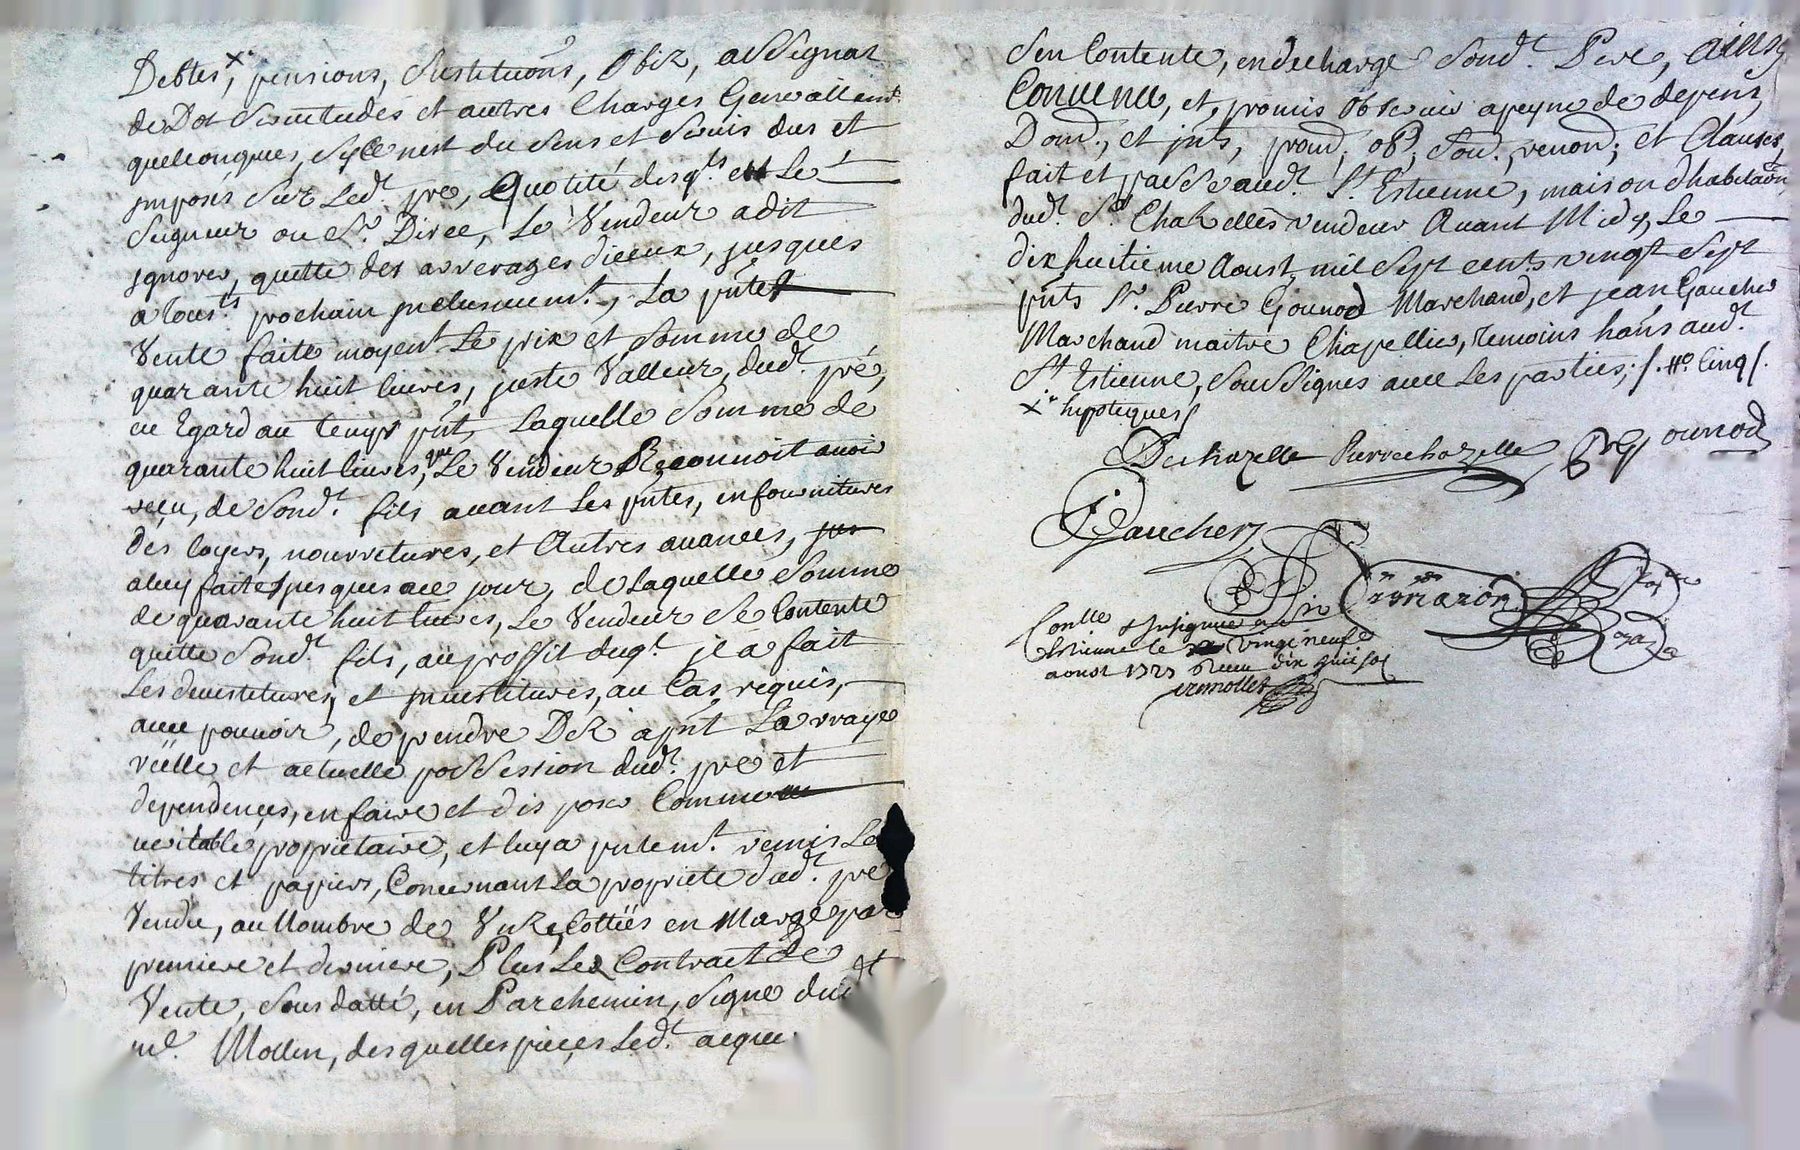 Debtes, x pensions, Restitutions, Obiz, assignaz
de Dot Servitudes et autres Charges Generallemt.
quelconques, Syce nest du Sens et Servis dus et
jmposés Sur Led.t pré, Quotité desq.ls et Le
Seigneur ou S.r Direc, Le Vendeur a dit
jgnorer, quitte des arrerages diceux, jusques
a tous.ts prochain jnclusivem.t, La pnte
Vente faite moyen.t Le prix et Somme de
quarante huit livres, juste Valleur, dud.t pré,
eu Egard au temps pnt, Laquelle Somme de
quarante huit livres, que Le Vendeur Reconnoit avoir
reçu, de Sond.t fils avant Les pntes, en fournitures
des loyers, nourretures, et Autres avances, jus
a luy faites jusques a ce jour, de Laquelle Somme
de quarante huit livres, Le Vendeur Se Contente
quitte Sond.t fils, au proffit duq.t il a fait
Les devestitures, et jnvestitures, au Cas requis,
avec pouvoir, de prendre Dez a pnt La vraye
réelle et actuelle possession dud.t pré et
dependences, en faire et disposer Comme
veritable propriétaire, et luy a pntem.t remis Le
titres et papiers, Concernant La propriete dud.t pré
Vendu, au Nombre de Unze, Cottées en Marge par
premiere et derniere, Plus Le Contract de
Vente, Sous datté, en Parchemin, Signé dud.t
m.e Mollin, desquelles pièces Led.t acque
S'en Contente, en decharge Sond.t Pere, Ainsy
Convenu, et promis Observer a peyne de depens,
Dom., et jnts, prom., ob., Soum., renon., et Clauses,
fait et passé aud.t S.t Estienne, maison d'habitaôn
dud.t S.r Chazelles vendeur Avant Midy, Le
dix huitieme Aoust mil Sept cents vingt Sept
pnts S.r Pierre Gounod Marchand, et jean Gaucher
Marchand maitre Chapellier, temoins hans aud.t
S.t Estienne, Soussignes avec Les parties; /. Ho. Cinq /.
x hipoteques /
Dechazelle Pierrechazelle PreGounod
J Gaucher
Conlle & Insignué au
Estienne le vingt neufe
aoust 1727 Receu dix huit sol